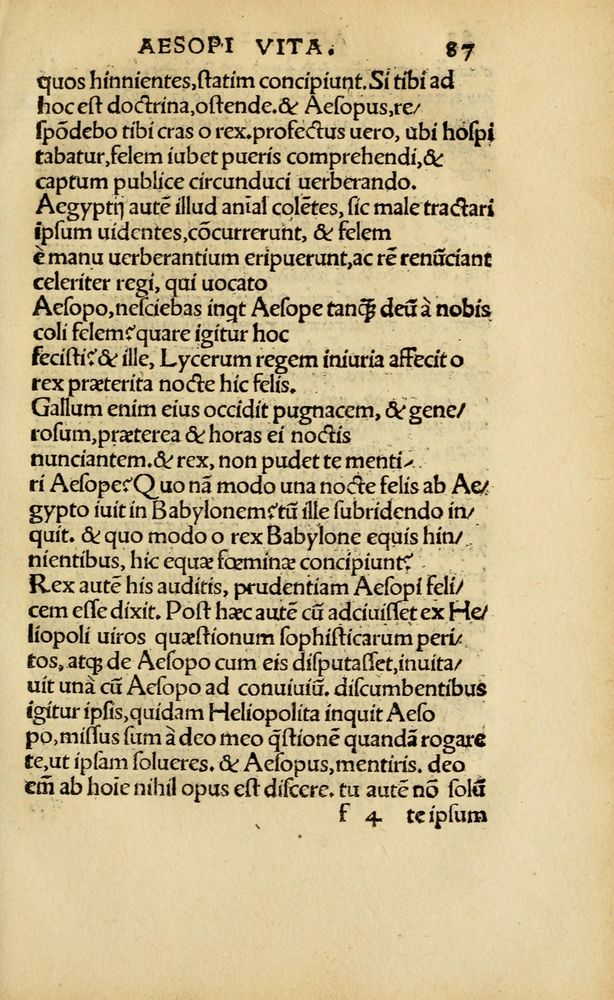 AESOPI VITA. 87
quos hinnientes,ſtatim concipiunt.Si tibi ad
hoc eſt doctrina,oſtende.& Aeſopus,re/
ſpōdebo tibi cras o rex.profectus uero, ubi hoſpi
tabatur,felem iubet pueris comprehendi,&
captum publice circunduci uerberando.
Aegyptij autē illud anīal colētes, ſic male tractari
ipſum uidentes,cōcurrerunt, & felem
è manu uerberantium eripuerunt,ac rē renūciant
celeriter regi, qui uocato
Aeſopo,neſciebas inqt Aeſope tanꝗ̃ deū à nobis
coli felem?quare igitur hoc
feciſti?& ille, Lycerum regem iniuria affecit o
rex præterita nocte hic felis.
Gallum enim eius occidit pugnacem, & gene/
roſum,præterea & horas ei noctis
nunciantem.& rex, non pudet te menti/
ri Aeſope?Quo nā modo una nocte felis ab Ae/
gypto iuit in Babylonem?tū ille ſubridendo in/
quit. & quo modo o rex Babylone equis hin/
nientibus, hic equæ fœminæ concipiunt?
Rex autē his auditis, prudentiam Aeſopi feli/
cem eſſe dixit. Poſt hæc autē cū adciuiſſet ex He/
liopoli uiros quæſtionum ſophiſticarum peri/
tos, atqꝫ de Aeſopo cum eis diſputaſſet,inuita/
uit unà cū Aeſopo ad conuiuiū. diſcumbentibus
igitur ipſis,quidam Heliopolita inquit Aeſo
po,miſſus ſum à deo meo q̄ſtionē quandā rogare
te,ut ipſam ſolueres. & Aeſopus,mentiris. deo
em̄ ab hoīe nihil opus eſt diſcere. tu autē nō ſolū
f 4 te ipſum